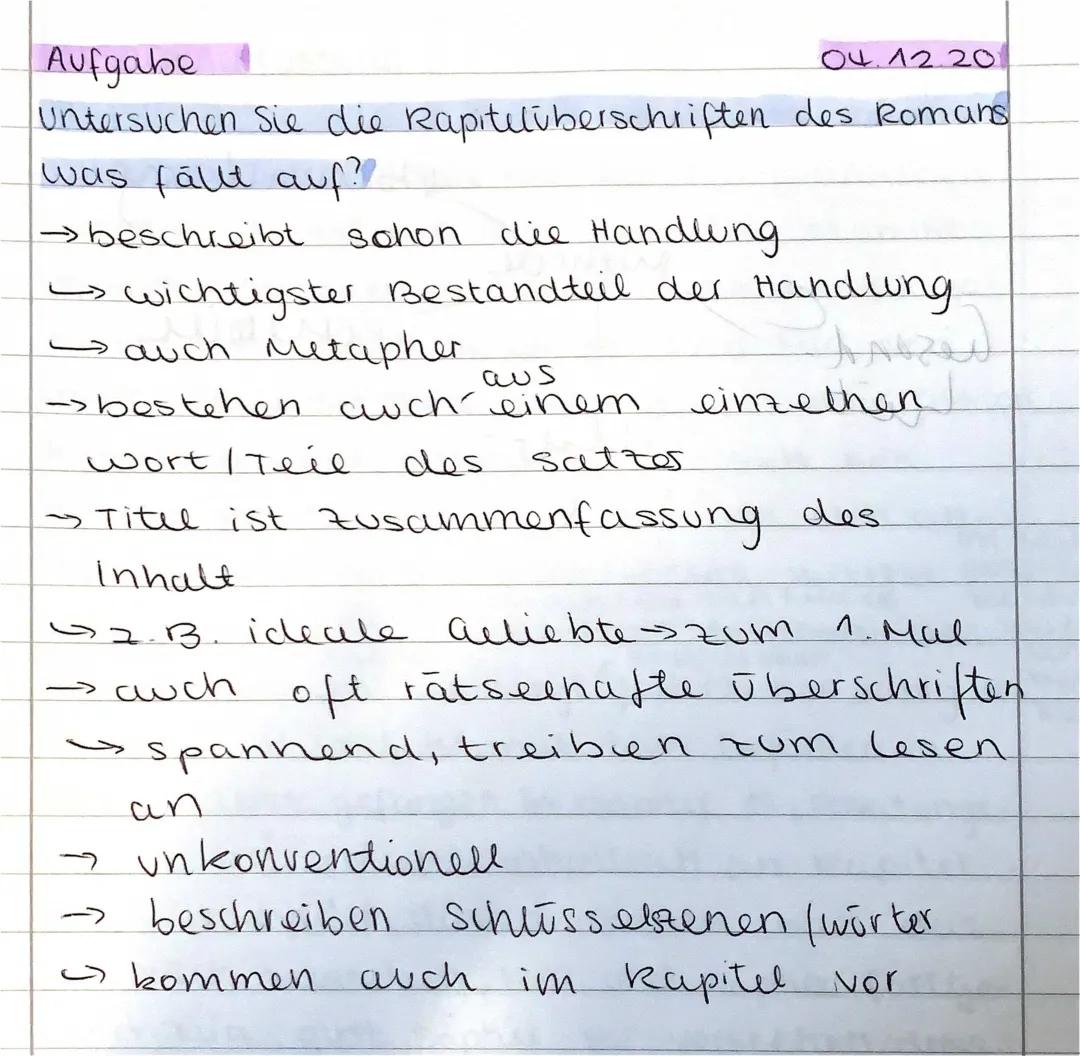 Aufgabe 04.12.20
Untersuchen Sie die Kapitelüberschriften des Romans
was fällt auf?
→ beschreibt schon die Handlung
↳ wichtigster Bestandteil der Handlung
↳ auch Metapher
aus
→ bestehen auch einem einzelnen
Wort / Teil des Satzes
→ Titel ist Zusammenfassung des
Inhalt
↳ z.B. ideale Geliebte → zum 1. Mal
→ auch oft rätselhafte Überschriften
↳ spannend, treiben zum lesen
an
→ unkonventionell
→ beschreiben Schlüsselszenen / wörter
↳ kommen auch im Kapitel vor